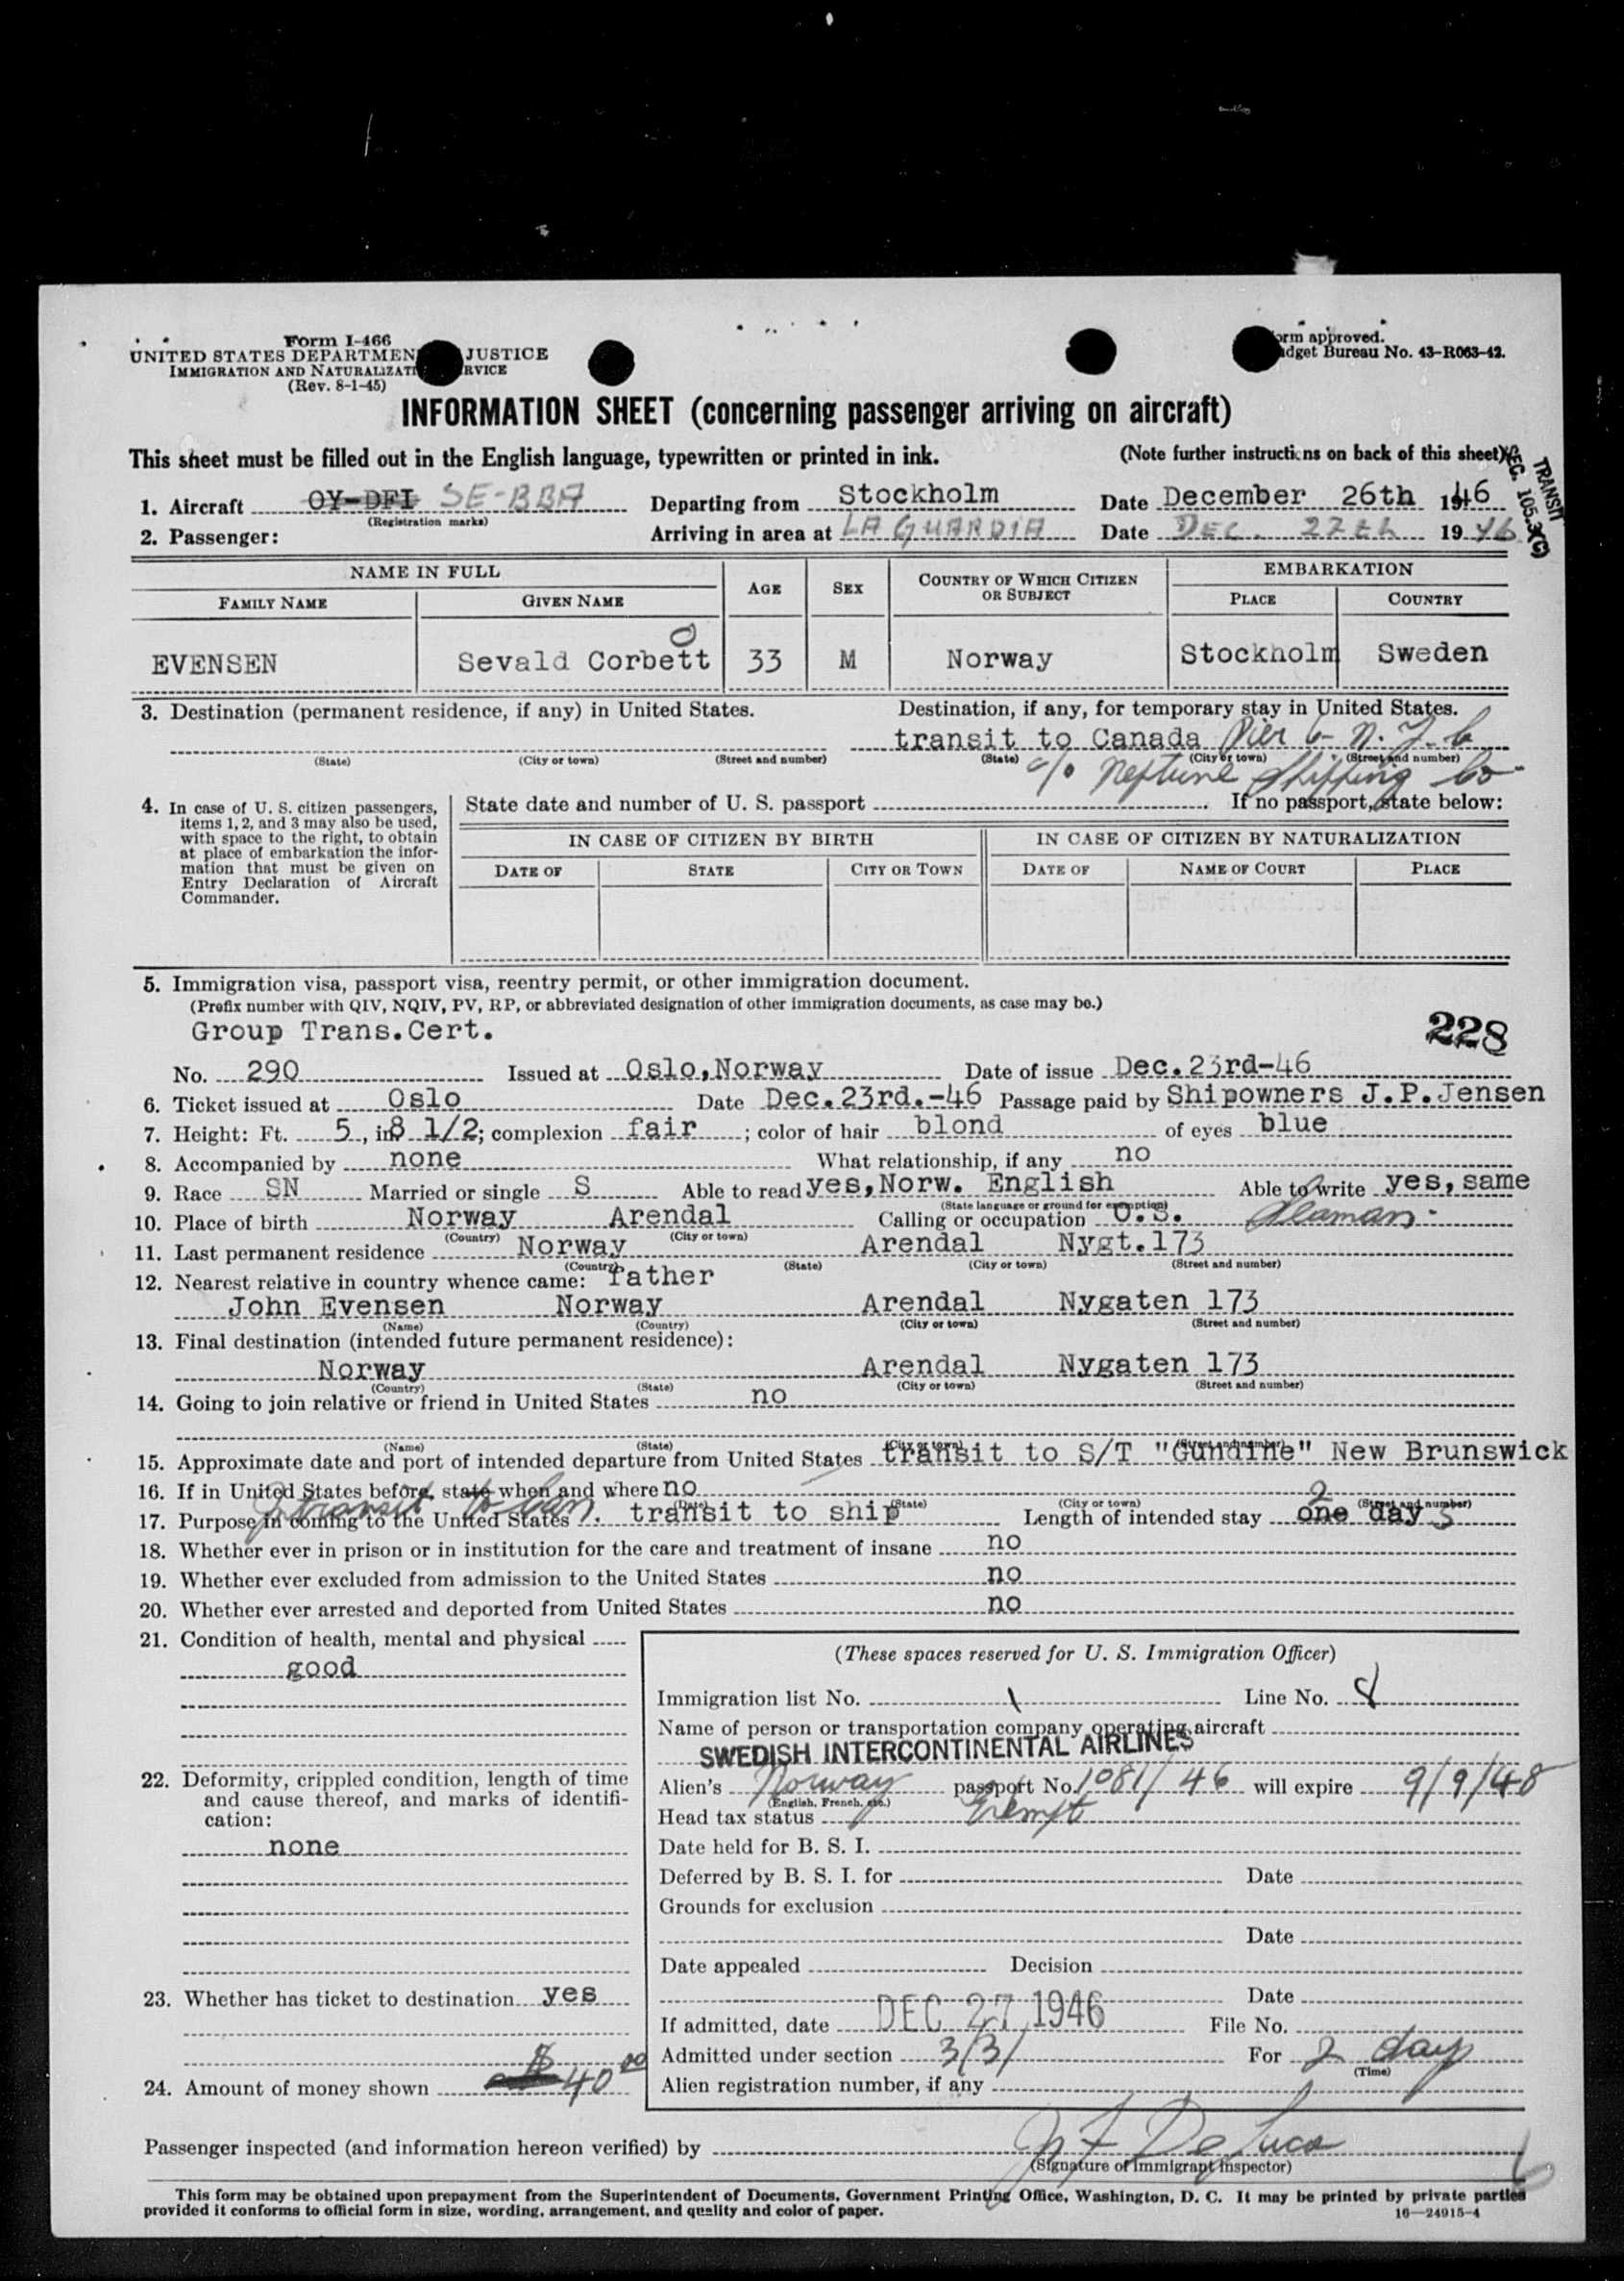 Form I-466
UNITED STATES DEPARTMEN JUSTICE
IMMIGRATION AND NATURALIZATI RVICE
(Rev. 8-1-45)
orm approved.
dget Bureau No. 43-R063-42.
INFORMATION SHEET (concerning passenger arriving on aircraft)
This sheet must be filled out in the English language, typewritten or printed in ink. (Note further instructions on back of this sheet)
TRANSIT
SEC. 105.3(C)
1. Aircraft OY-DFI SE-BBA Departing from Stockholm Date December 26th 1946
(Registration marks)
2. Passenger: Arriving in area at LA GUARDIA Date DEC. 27th 1946
NAME IN FULL AGE SEX COUNTRY OF WHICH CITIZEN OR SUBJECT EMBARKATION
FAMILY NAME GIVEN NAME PLACE COUNTRY
EVENSEN Sevald Corbett 33 M Norway Stockholm Sweden
3. Destination (permanent residence, if any) in United States. Destination, if any, for temporary stay in United States.
transit to Canada Pier 6- N.Y.C
(State) (City or town) (Street and number) (State) (City or town) (Street and number)
c/o Neptune Shipping Co.
4. In case of U. S. citizen passengers, items 1, 2, and 3 may also be used, with space to the right, to obtain at place of embarkation the information that must be given on Entry Declaration of Aircraft Commander.
State date and number of U. S. passport . If no passport, state below:
IN CASE OF CITIZEN BY BIRTH IN CASE OF CITIZEN BY NATURALIZATION
DATE OF STATE CITY OR TOWN DATE OF NAME OF COURT PLACE
5. Immigration visa, passport visa, reentry permit, or other immigration document.
(Prefix number with QIV, NQIV, PV, RP, or abbreviated designation of other immigration documents, as case may be.)
Group Trans.Cert. 228
No. 290 Issued at Oslo, Norway Date of issue Dec.23rd-46
6. Ticket issued at Oslo Date Dec.23rd.-46 Passage paid by Shipowners J.P.Jensen
7. Height: Ft. 5, in. 8 1/2; complexion fair; color of hair blond of eyes blue
8. Accompanied by none What relationship, if any no
9. Race SN Married or single S Able to read yes, Norw. English Able to write yes, same
(State language or ground for exemption)
10. Place of birth Norway Arendal Calling or occupation O.S. Seaman.
(Country) (City or town)
11. Last permanent residence Norway Arendal Nygt.173
(Country) (State) (City or town) (Street and number)
12. Nearest relative in country whence came: father
John Evensen Norway Arendal Nygaten 173
(Name) (Country) (City or town) (Street and number)
13. Final destination (intended future permanent residence):
Norway Arendal Nygaten 173
(Country) (State) (City or town) (Street and number)
14. Going to join relative or friend in United States no
(Name) (State) (City or town) (Street and number)
15. Approximate date and port of intended departure from United States transit to S/T "Gundine" New Brunswick
16. If in United States before, state when and where no
(Date) (State) (City or town) (Street and number)
In transit to Can.
17. Purpose in coming to the United States transit to ship Length of intended stay one day 2 s
18. Whether ever in prison or in institution for the care and treatment of insane no
19. Whether ever excluded from admission to the United States no
20. Whether ever arrested and deported from United States no
21. Condition of health, mental and physical
good
22. Deformity, crippled condition, length of time and cause thereof, and marks of identification:
none
23. Whether has ticket to destination yes
24. Amount of money shown $40.00
(These spaces reserved for U. S. Immigration Officer)
Immigration list No. 1 Line No. 8
Name of person or transportation company operating aircraft
SWEDISH INTERCONTINENTAL AIRLINES
Alien's Norway passport No. 1081/46 will expire 9/9/48
(English, French, etc.)
Head tax status Exempt
Date held for B. S. I.
Deferred by B. S. I. for Date
Grounds for exclusion
Date
Date appealed Decision
Date
If admitted, date DEC 27 1946 File No.
Admitted under section 3/3/ For 2 days
(Time)
Alien registration number, if any
Passenger inspected (and information hereon verified) by De Luca
(Signature of Immigrant Inspector)
6
This form may be obtained upon prepayment from the Superintendent of Documents, Government Printing Office, Washington, D. C. It may be printed by private parties
provided it conforms to official form in size, wording, arrangement, and quality and color of paper.
16—24915-4